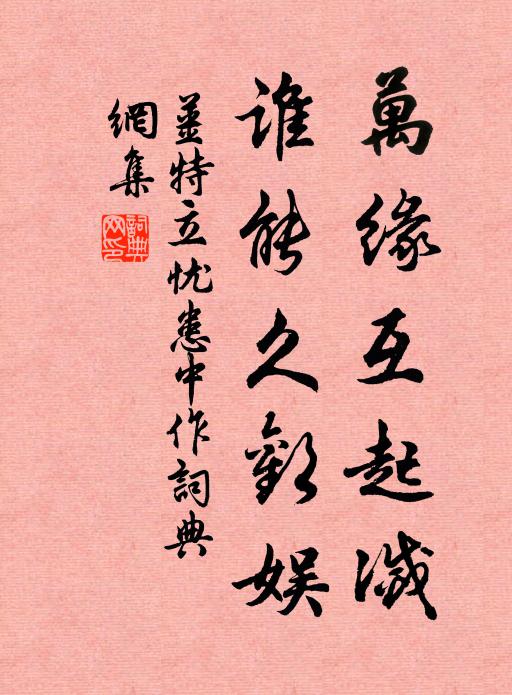 萬緣互起滅
誰能久歡娛
姜特立忧患中作詞典
網集
詞典网印